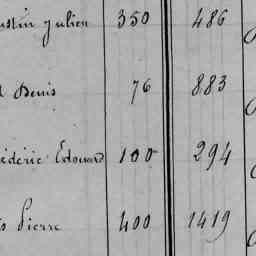 ustin Julien 350 486
Denis 76 883
édéric Edouard 100 294
Pierre 400 1419